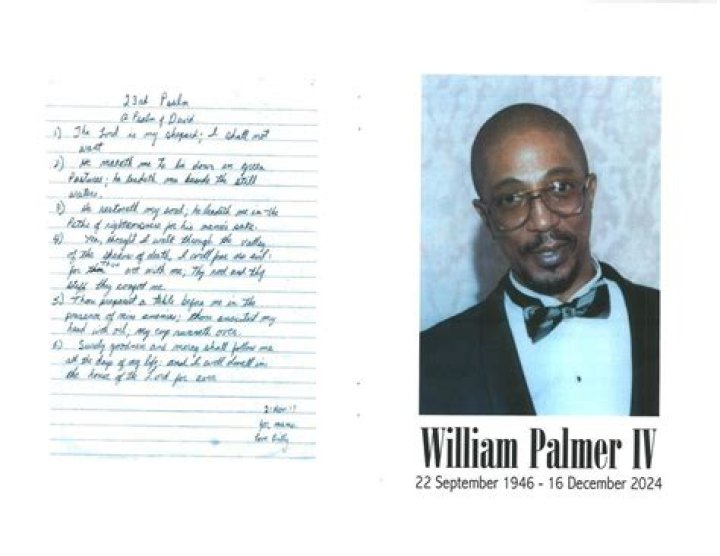 23rd Psalm
A Psalm of David
1) The Lord is my shepard; I shall not
want
2) He maketh me to lie down in green
Pastures; he leadeth me beside the still
waters.
3) He restoreth my soul; he leadeth me in the
Paths of righteousness for his name's sake.
4) Yea, though I walk through the valley
of the shadow of death, I will fear no evil:
for thou art with me; Thy rod and thy
staff they comfort me.
5) Thou preparest a table before me in the
presence of mine enemies; thou anointest my
head with oil, my cup runneth over.
6) Surely goodness and mercy shall follow me
all the days of my life: and I will dwell in
the house of the Lord for ever
for mama
love Billy
William Palmer IV
22 September 1946 - 16 December 2024